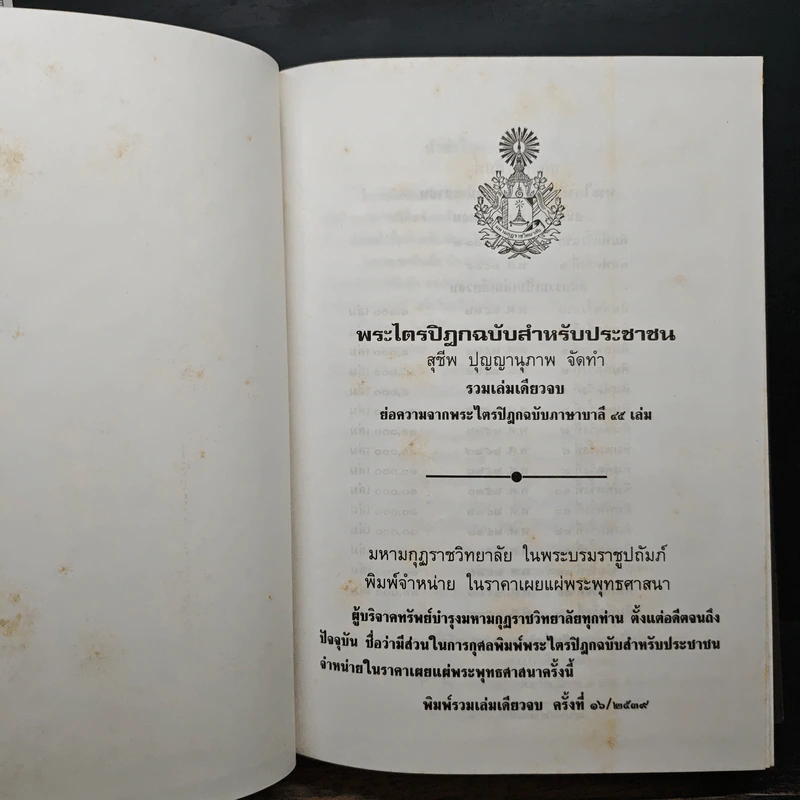 พระไตรปิฎกฉบับสำหรับประชาชน
สุชีพ ปุญญานุภาพ จัดทำ
รวมเล่มเดียวจบ
ย่อความจากพระไตรปิฎกฉบับภาษาบาลี ๔๕ เล่ม
มหามกุฏราชวิทยาลัย ในพระบรมราชูปถัมภ์
พิมพ์จำหน่าย ในราคาเผยแผ่พระพุทธศาสนา
ผู้บริจาคทรัพย์บำรุงมหามกุฏราชวิทยาลัยทุกท่าน ตั้งแต่อดีตจนถึง
ปัจจุบัน ชื่อว่ามีส่วนในการกุศลพิมพ์พระไตรปิฎกฉบับสำหรับประชาชน
จำหน่ายในราคาเผยแผ่พระพุทธศาสนาครั้งนี้
พิมพ์รวมเล่มเดียวจบ ครั้งที่ ๑๖/๒๕๓๙